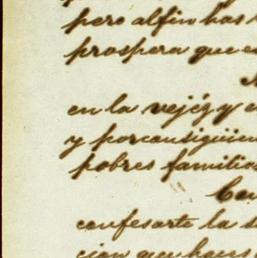 pero al fin has
prospera que es
en la vejéz y e
y por consigüien
pobres familia
confesarte la s
cion que haces